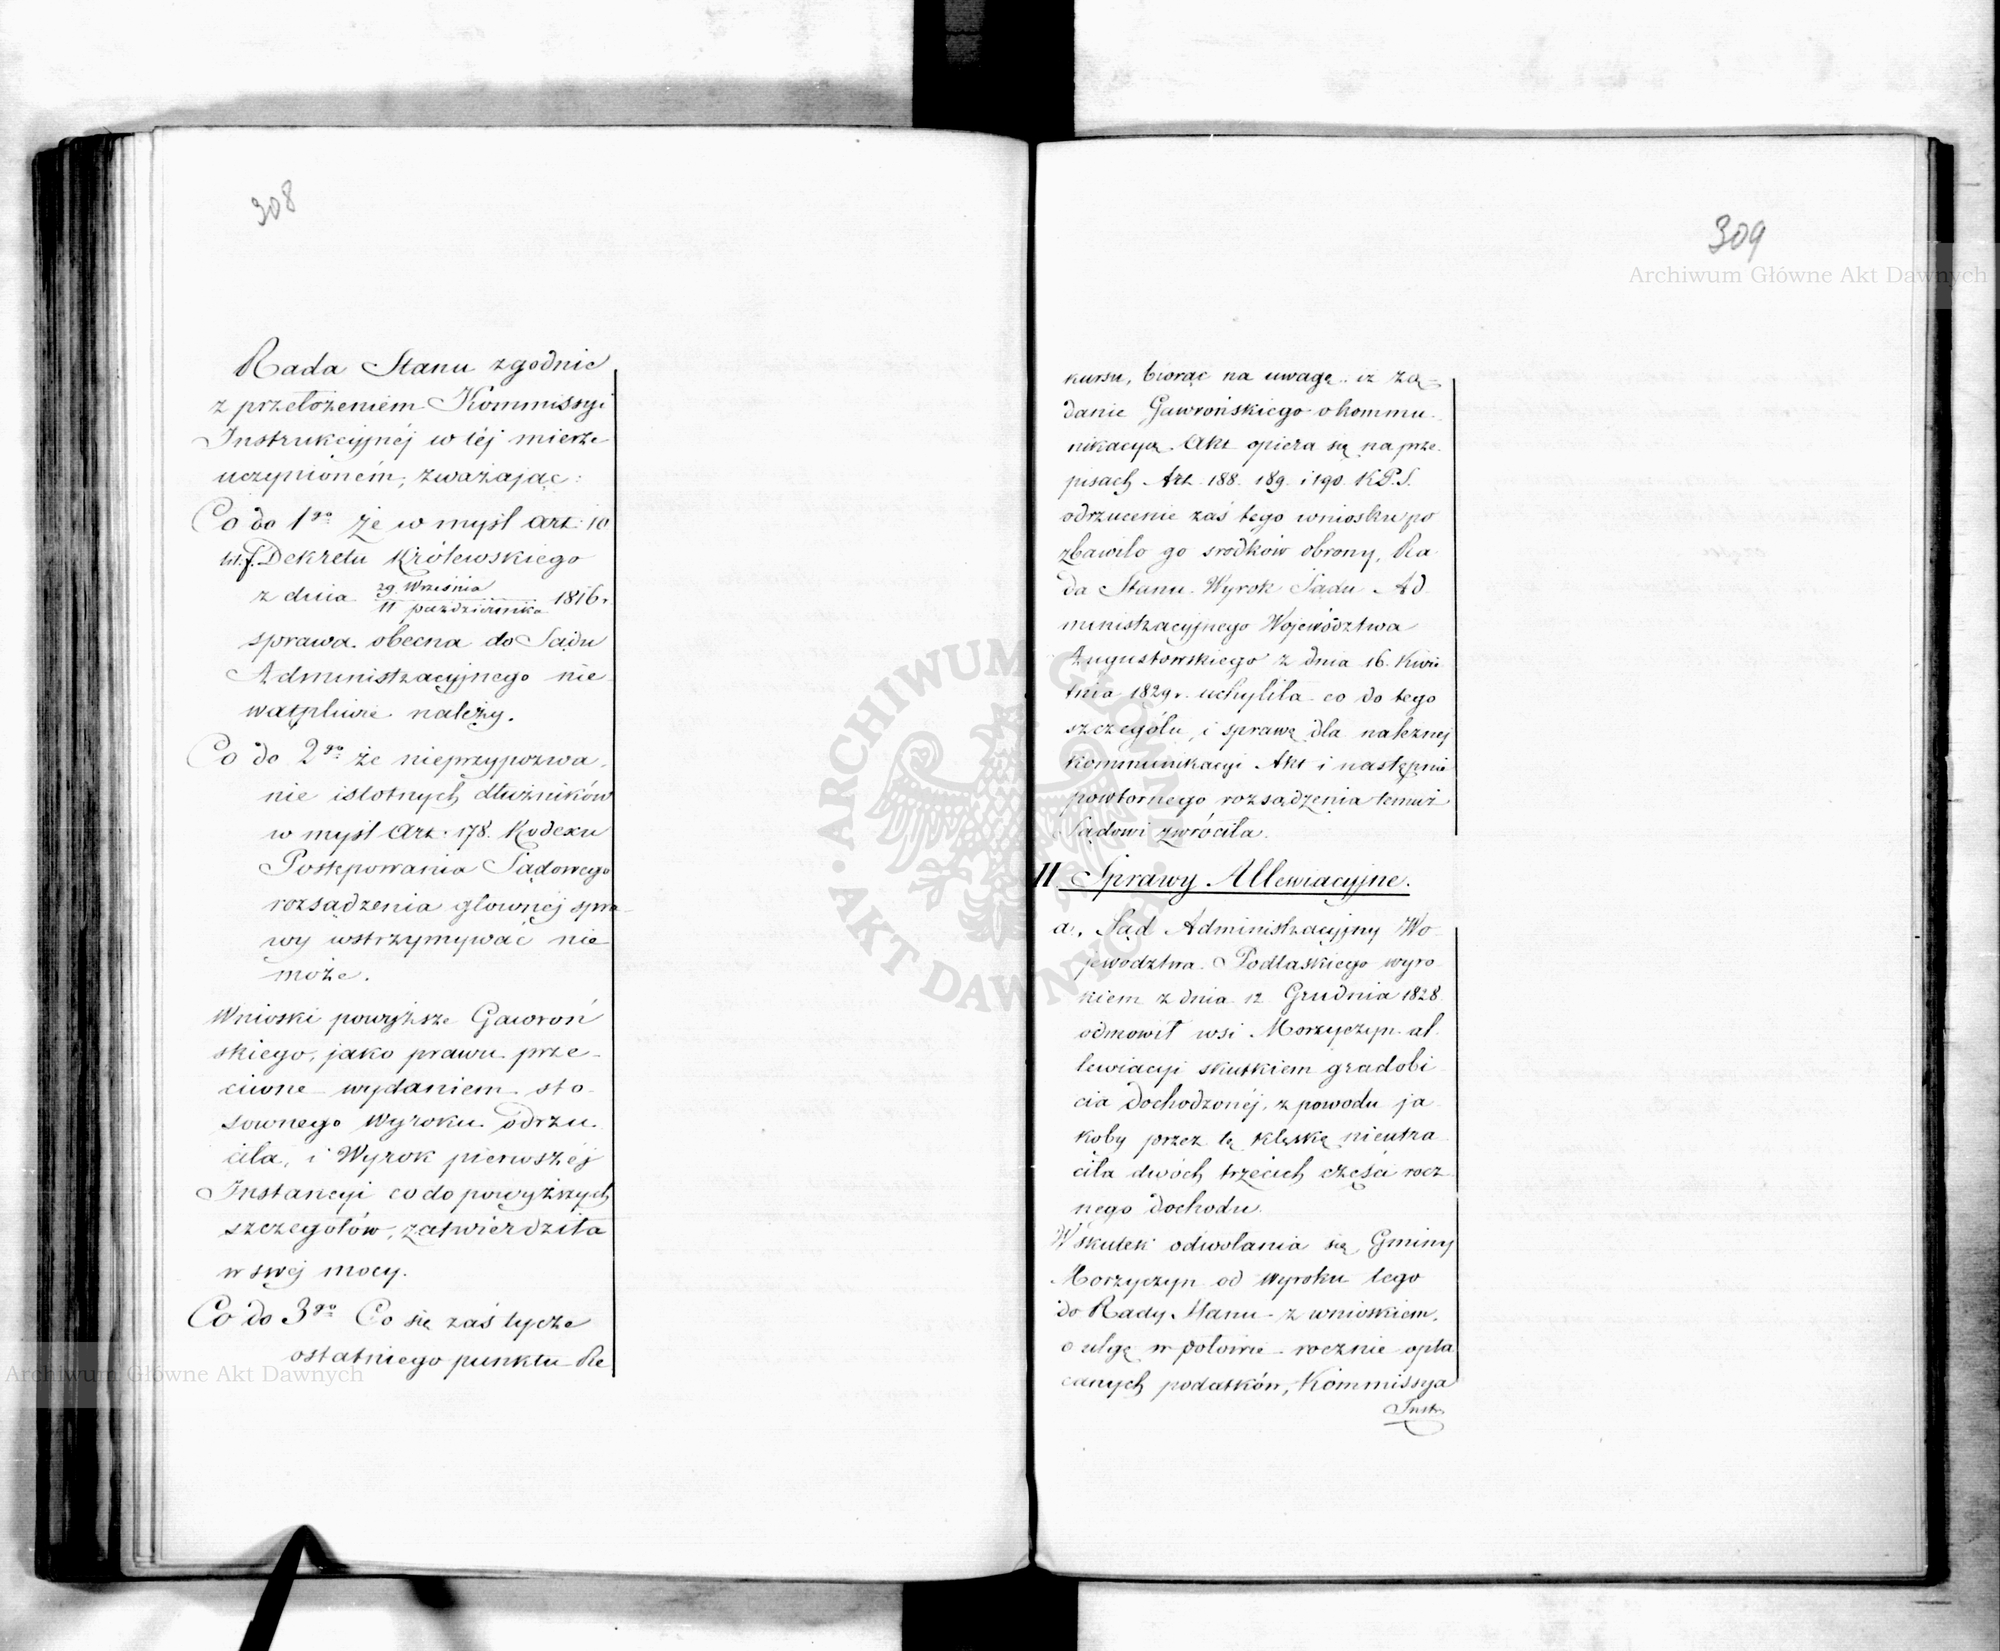 308
Rada Stanu zgodnie
z przełożeniem Kommissyi
Instrukcyjnéj w téj mierze
uczynioném, zważając:
Co do 1go że w myśl Art: 10
lit. f. Dekretu Królewskiego
z dnia 29 Września / 11 października 1816.
sprawa obecna do Sądu
Administracyjnego nie
wątpliwie należy.
Co do 2go że nieprzypozwa-
nie istotnych dłużników
w myśl Art. 178. Kodexu
Postępowania Sądowego
rozsądzenia głownéj spra-
wy wstrzymywać nie
może.
Wnioski powyższe Gawroń
skiego, jako prawu prze-
ciwne wydaniem sto-
sownego Wyroku odrzu-
ciła, i Wyrok pierwszéj
Instancyi co do powyższych
szczegółów, zatwierdziła
w swéj mocy.
Co do 3go Co się zaś tycze
ostatniego punktu Re
309
Archiwum Główne Akt Dawnych
kursu, biorąc na uwagę, iż żą-
danie Gawrońskiego o kommu-
nikacyą Akt opiera się na prze-
pisach Art. 188. 189. i 190. K.P.S.
odrzucenie zaś tego wniosku po
zbawiło go srodków obrony, Ra-
da Stanu Wyrok Sądu Ad-
ministracyjnego Województwa
Augustowskiego z dnia 16. Kwie
tnia 1829 r. uchyliła co do tego
szczegółu, i sprawę dla należnej
kommunikacyi Akt i następnie
powtornego rozsądzenia temuż
Sądowi zwróciła.
II Sprawy Allewiacyjne.
a. Sąd Administracyjny Wo-
jewodztwa Podlaskiego wyro-
kiem z dnia 12 Grudnia 1828
odmowił wsi Morzyczyn al-
lewiacyi skutkiem gradobi-
cia dochodzonéj, z powodu ja-
koby przez tę klęskę nieutra-
ciła dwóch trzecich części rocz-
nego dochodu.
W skutek odwołania się Gminy
Morzyczyn od Wyroku tego
do Rady Stanu z wnioskiem,
o ulgę w połowie rocznie opła
canych podatków, Kommissya
Instr.
Archiwum Główne Akt Dawnych
ARCHIWUM GŁÓWNE AKT DAWNYCH